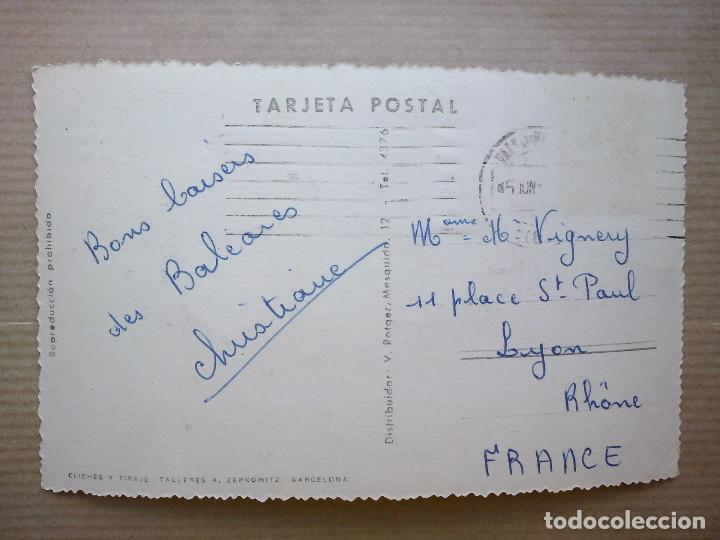 TARJETA POSTAL
Bons baisers
des Baléares
Christiane
Reproducción prohibida
Distribuidor: V. Rotger, Mesquida, 12 - Tel. 4376
CLICHÉS Y TIRAJE: TALLERES A. ZERKOWITZ. BARCELONA
5 JUN
Mame Mr Vignery
11 place St Paul
Lyon
Rhône
FRANCE
todocoleccion.net